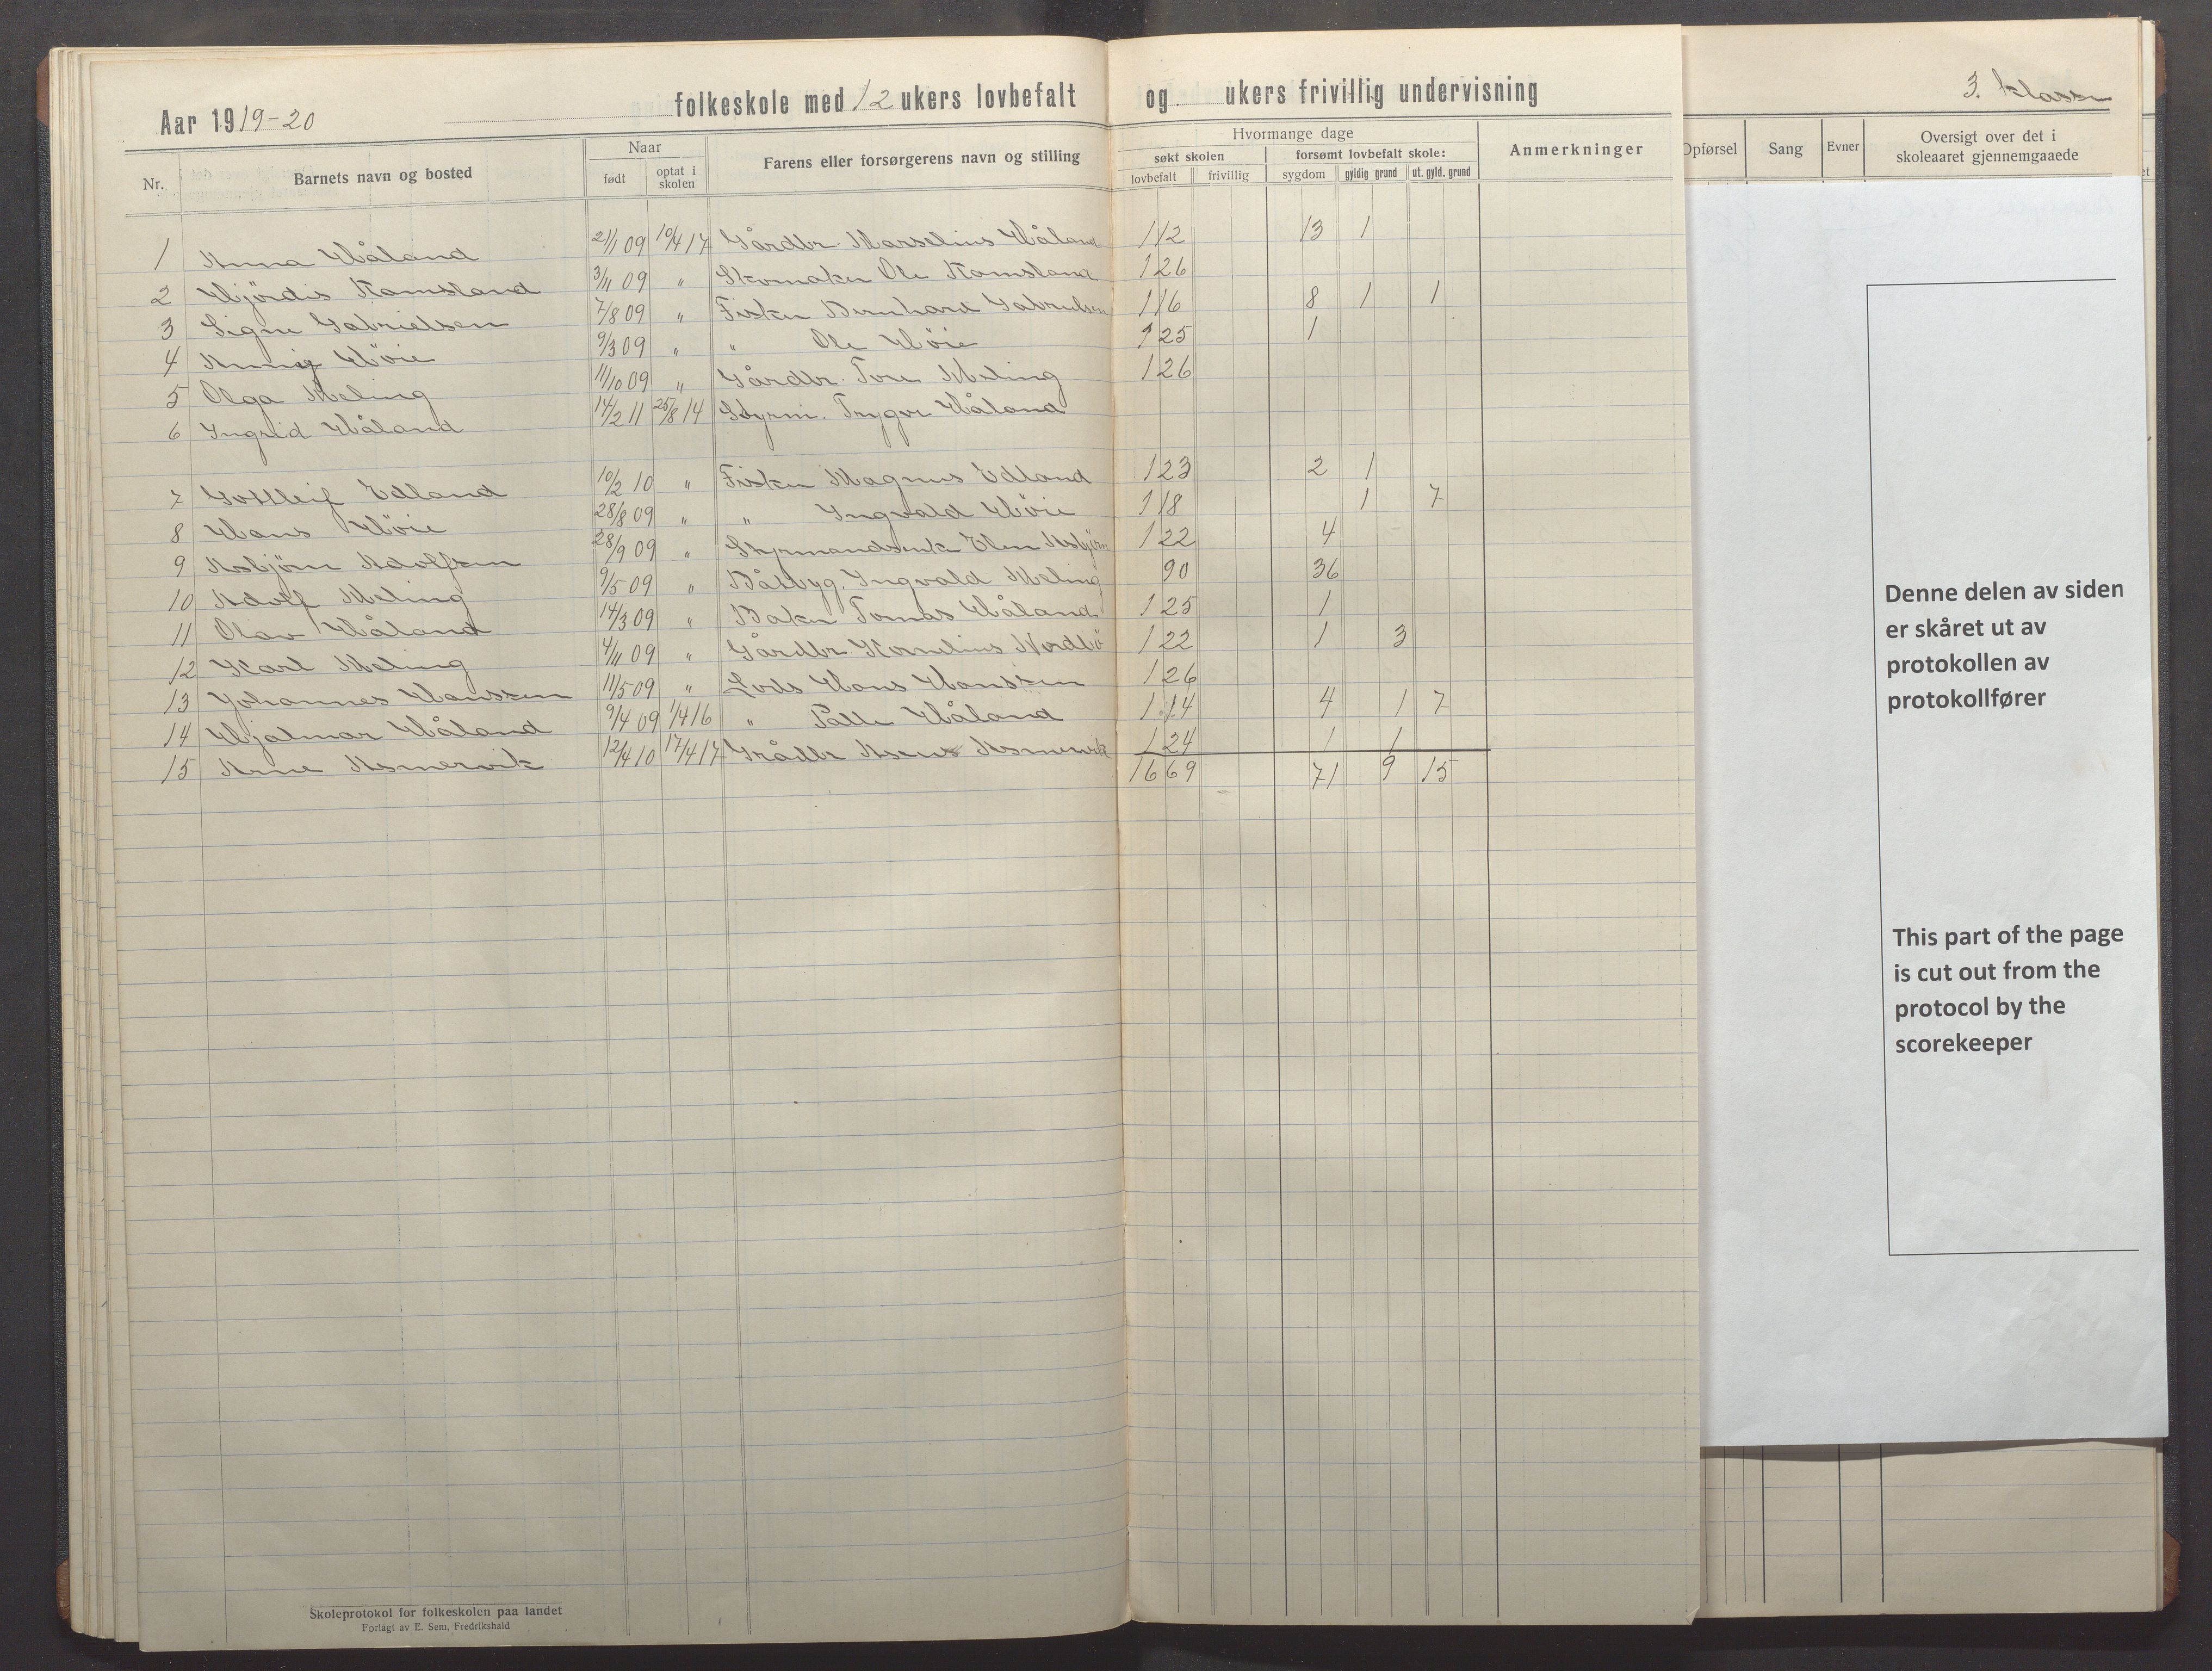 Aar 1919-20 folkeskole med 12 ukers lovbefalt og ukers frivillig undervisning
3. klasse
Nr. Barnets navn og bosted Naar født optat i skolen Farens eller forsørgerens navn og stilling Hvormange dage søkt skolen lovbefalt frivillig forsømt lovbefalt skole: sygdom gyldig grund ut. gyld. grund Anmerkninger Opførsel Sang Evner Oversigt over det i skoleaaret gjennemgaaede
1 Anna Håland 2/11 09 10/4 17 Gårdbr. Marselius Håland 112 13 1
2 Hjördis Kamsland 3/11 09 " Skomaker Ole Kamsland 126
3 Signe Gabrielsen 7/8 09 " Fisker Bernhard Gabrielsen 116 8 1 1
4 Höie 9/3 09 " " Ole Höie 125 1
5 Olga Meling 11/10 09 " Gårdbr. Tore Meling 126
6 Ingrid Håland 14/2 11 25/8 14 Styrm. Trygve Håland
7 Gottleif Edland 10/2 10 " Fisker Magnus Edland 123 2 1
8 Hans Höie 28/8 09 " " Ingvald Höie 118 1 7
9 Asbjörn Adolfsen 28/9 09 " Styrmandsenke Elen Asbjörn 122 4
10 Adolf Meling 9/5 09 " Båtbyg. Ingvald Meling 90 36
11 Olav Håland 14/3 09 " Baker Tomas Håland 125 1
12 Karl Meling 4/11 09 " Gårdbr. Kornelius Nordbö 122 1 3
13 Johannes Hanssen 11/5 09 " Lods Hans Hanssen 126
14 Hjalmar Håland 9/4 09 1/4 16 " Palle Håland 114 4 1 7
15 Arne Asmervik 12/4 10 17/4 17 Grådbr Asmervik 124 1 1
1669 71 9 15
Denne delen av siden
er skåret ut av
protokollen av
protokollfører
This part of the page
is cut out from the
protocol by the
scorekeeper
Skoleprotokol for folkeskolen paa landet
Forlagt av E. Sem, Fredrikshald